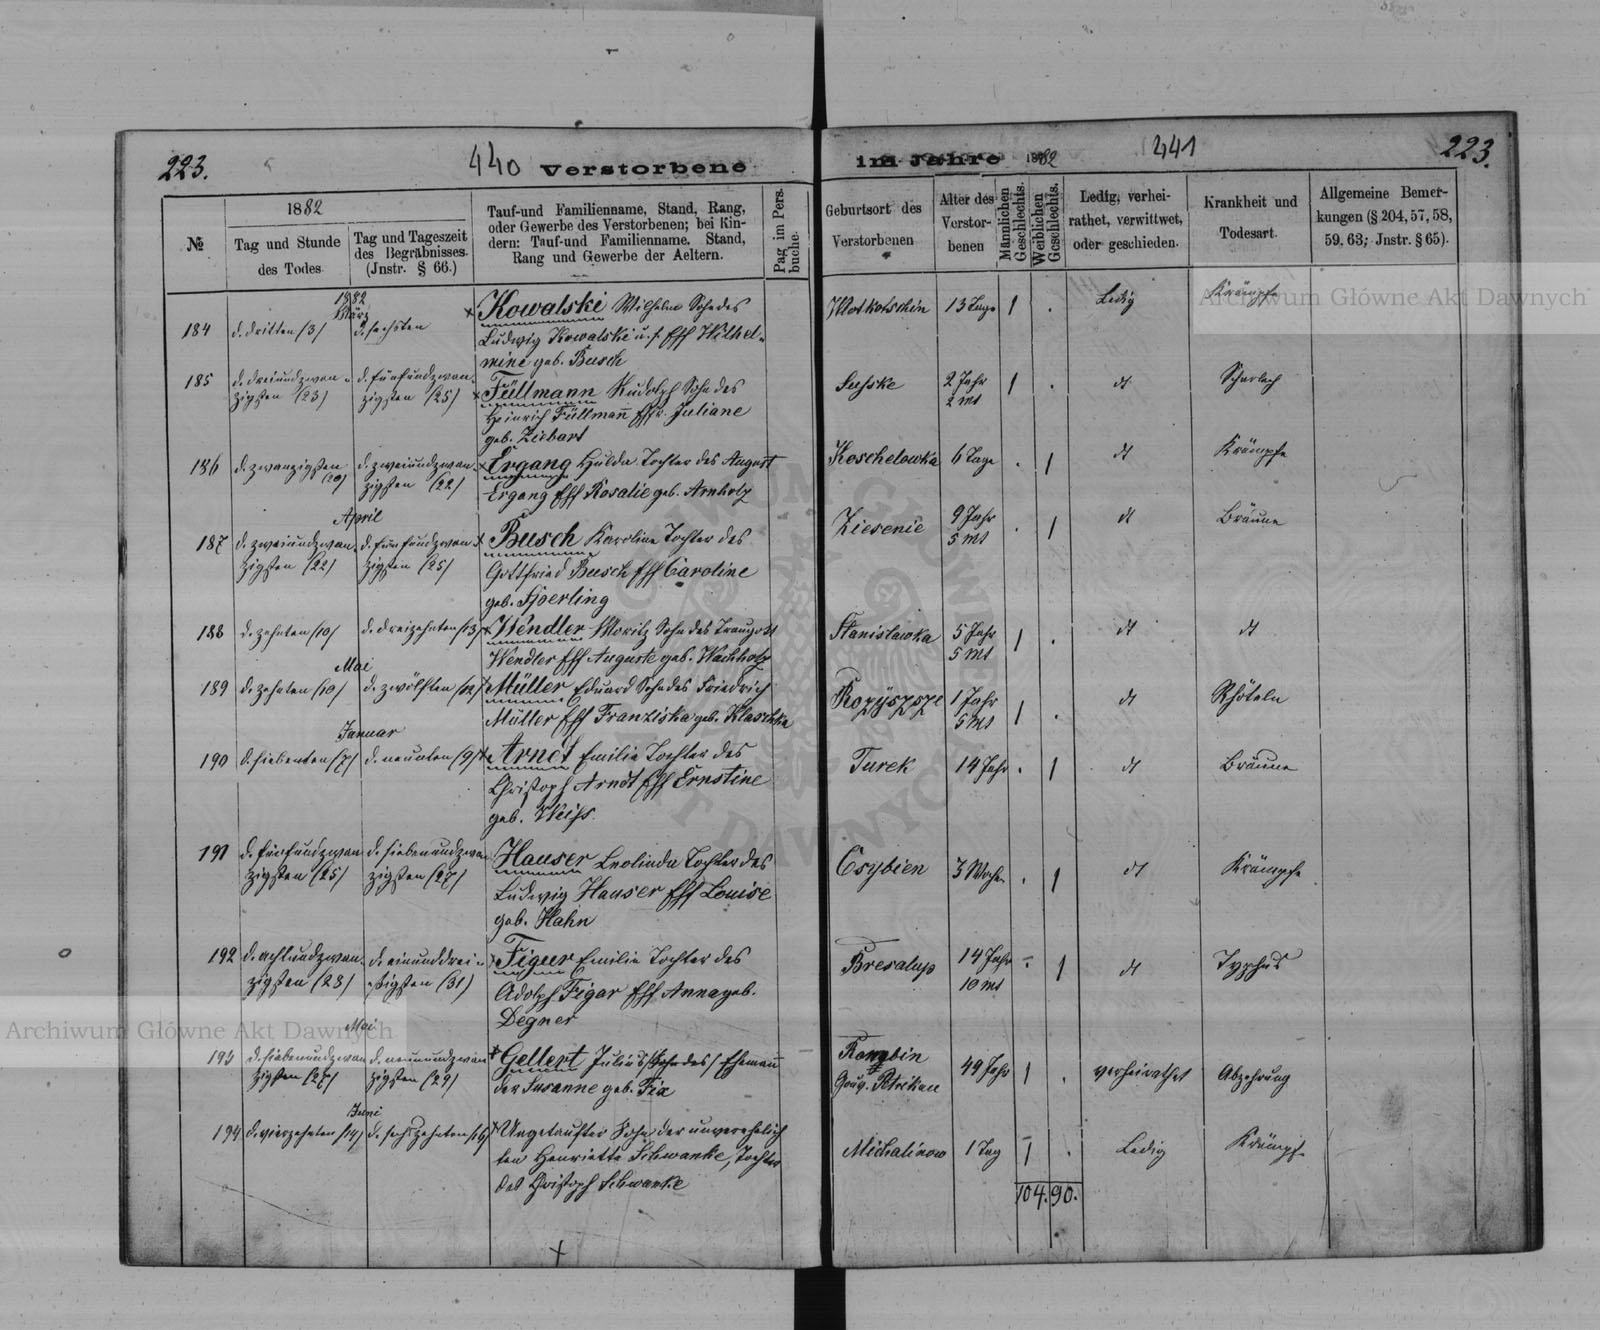 223.
440
Verstorbene
im Jahre 1882
441
223.
№
1882
Tag und Stunde
des Todes.
Tag und Tageszeit
des Begräbnisses.
(Jnstr. § 66.)
Tauf-und Familienname, Stand, Rang,
oder Gewerbe des Verstorbenen; bei Kin-
dern: Tauf-und Familienname, Stand,
Rang und Gewerbe der Aeltern.
Pag im Pers.
buche.
Geburtsort des
Verstorbenen
Alter des
Verstor-
benen
Männlichen
Geschlechts.
Weiblichen
Geschlechts.
Ledig, verhei-
rathet, verwittwet,
oder geschieden.
Krankheit und
Todesart.
Allgemeine Bemer-
kungen (§ 204, 57, 58,
59, 63; Jnstr. § 65).
1882
März
184
d. dritten /3/
d. sechsten
Kowalski Wilhelm Sohn des
Ludwig Kowalski u. s. Eff Wilhel-
mine geb. Busch
13 Tage
1
Ledig
Krämpfe
185
d. dreiundzwan-
zigsten /23/
d. fünfundzwan-
zigsten /25/
Füllmann Rudolph Sohn des
Heinrich Füllmann Effr. Juliane
geb. Ziebart
2 Jahr
2 mt
1
dt
Scharlach
186
d. zwanzigsten
/20/
d. zweiundzwan-
zigsten /22/
Ergang Hulda Tochter des August
Ergang Eff Rosalie geb. Arnholz
Koschelowka
6 Tage
1
dt
Krämpfe
April
187
d. zweiundzwan-
zigsten /22/
d. fünfundzwan-
zigsten /25/
Busch Karoline Tochter des
Gottfried Busch Eff Caroline
geb.
Ziesenie
9 Jahr
5 mt
1
dt
Bräune
188
d. zehnten /10/
d. dreizehnten /13/
Wendler Moritz Sohn des Traugott
Wendler Eff Auguste geb. Wachholz
Stanislawka
5 Jahr
5 mt
1
dt
dt
Mai
189
d. zehnten /10/
d. zwölften /12/
Müller Eduard Sohn des Friedrich
Müller Eff Franziska geb. Klaschka
1 Jahr
5 mt
1
dt
Rhöteln
Januar
190
d. siebenten /7/
d. neunten /9/
Arndt Emilie Tochter des
Christoph Arndt Eff Ernstine
geb. Weiss
Turek
14 Jahr
1
dt
Bräune
191
d. fünfundzwan
zigsten /25/
d. siebenundzwan
zigsten /27/
Hauser Leolinda Tochter des
Ludwig Hauser Eff Louise
geb. Hahn
3 Woche
1
dt
Krämpfe
192
d. achtundzwan-
zigsten /28/
d. einunddrei-
ssigsten /31/
Figur Emilie Tochter des
Adolph Figar Eff Anna geb.
Degner
14 Jahr
10 mt
1
dt
Typhus
Mai
193
d. siebenundzwan
zigsten /27/
d. neunundzwan
zigsten /29/
Gellert Julius /Sohn des/ Ehemann
der Susanne geb. Fia
Gouv. Petrikau
49 Jahr
1
verheirathet
Abzehrung
Juni
194
d. vierzehnten /14/
d. sechszehnten /16/
Ungetaufter Sohn der unverehelich
ten Henriette Schwanke, Tochter
des Christoph Schwanke
Michalinow
1 Tag
1
Ledig
Krämpfe
104. 90.
Archiwum Główne Akt Dawnych
Archiwum Główne Akt Dawnych